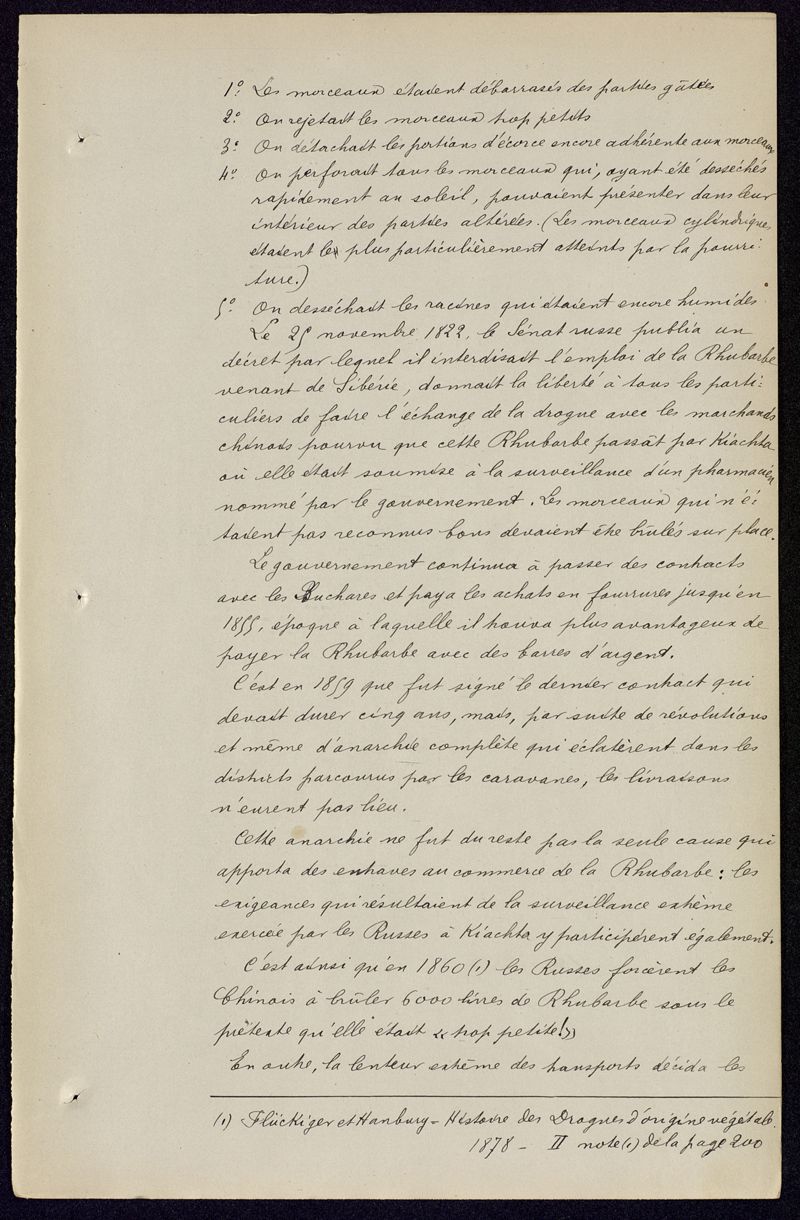 1º. Les morceaux étaient débarrasés des parties gâtées
2º. On rejetait les morceaux trop petits
3º. On détachait les portions d'écorce encore adhérente aux morceaux
4º. On perforait tous les morceaux qui, ayant été desséchés
rapidement au soleil, pouvaient présenter dans leur
intérieur des parties altérées. (Les morceaux cylindriques
étaient les plus particulièrement atteints par la pourri-
ture.)
5º. On desséchait les racines qui étaient encore humides.
Le 25 novembre 1822, le Sénat russe publia un
décret par lequel il interdisait l'emploi de la Rhubarbe
venant de Sibérie, donnait la liberté à tous les parti-
culiers de faire l'échange de la drogue avec les marchands
chinois pourvu que cette Rhubarbe passât par Kiachta
où elle était soumise à la surveillance d'un pharmacien
nommé par le gouvernement. Les morceaux qui n'é-
taient pas reconnus bons devaient être brûlés sur place.
Le gouvernement continua à passer des contracts
avec les Buchares et paya les achats en fourrures jusqu'en
1855, époque à laquelle il trouva plus avantageux de
payer la Rhubarbe avec des barres d'argent.
C'est en 1859 que fut signé le dernier contract qui
devait durer cinq ans, mais, par suite de révolutions
et même d'anarchie complète qui éclatèrent dans les
districts parcourus par les caravanes, les livraisons
n'eurent pas lieu.
Cette anarchie ne fut du reste pas la seule cause qui
apporta des entraves au commerce de la Rhubarbe: les
exigeances qui résultaient de la surveillance extrème
exercée par les Russes à Kiachta y participérent également.
C'est ainsi qu'en 1860 (1) les Russes forcèrent les
Chinois à brûler 6000 livres de Rhubarbe sous le
prétexte qu'elle était « trop petite!»
En outre, la lenteur extrème des transports décida les
(1) Flückiger et Hanbury - Histoire des Drogues d'origine végétale.
1878 - II note (1) de la page 200